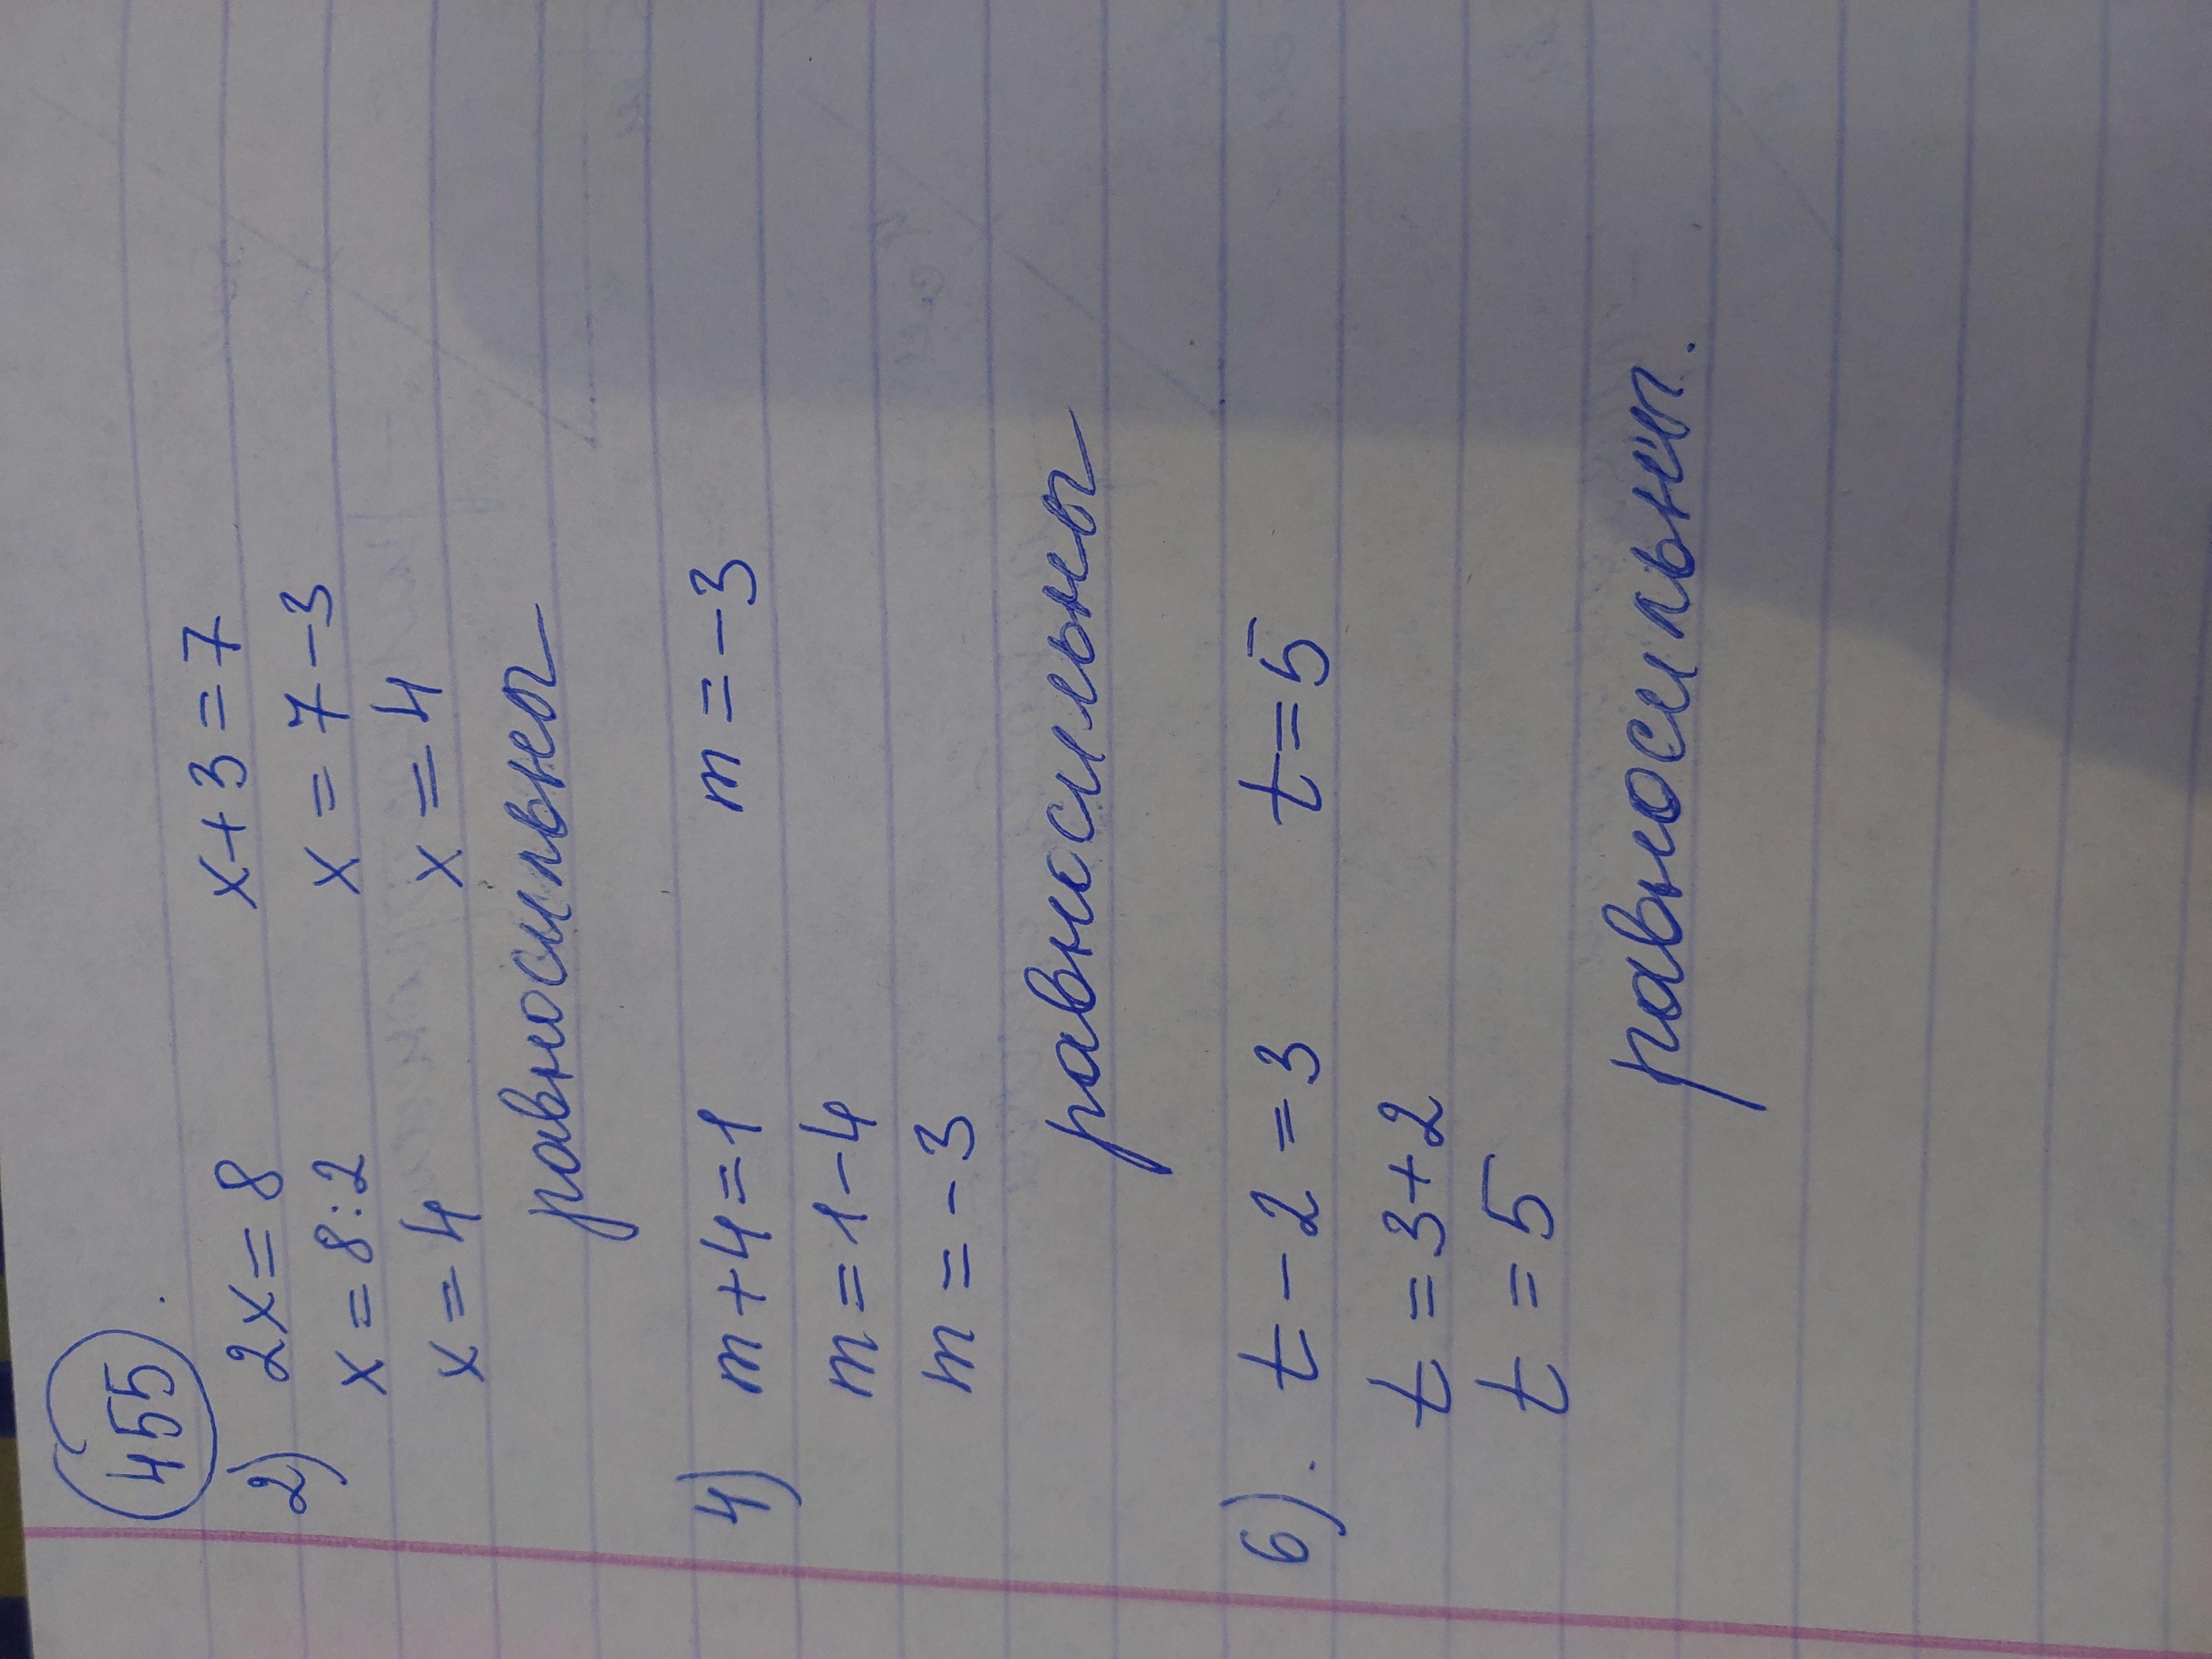 455
2) 2x=8 x+3=7
x=8:2 x=7-3
x=4 x=4
равносильны
4) m+4=1 m=-3
m=1-4
m=-3
равнесильны
6). t-2=3 t=5
t=3+2
t=5
равносильны.